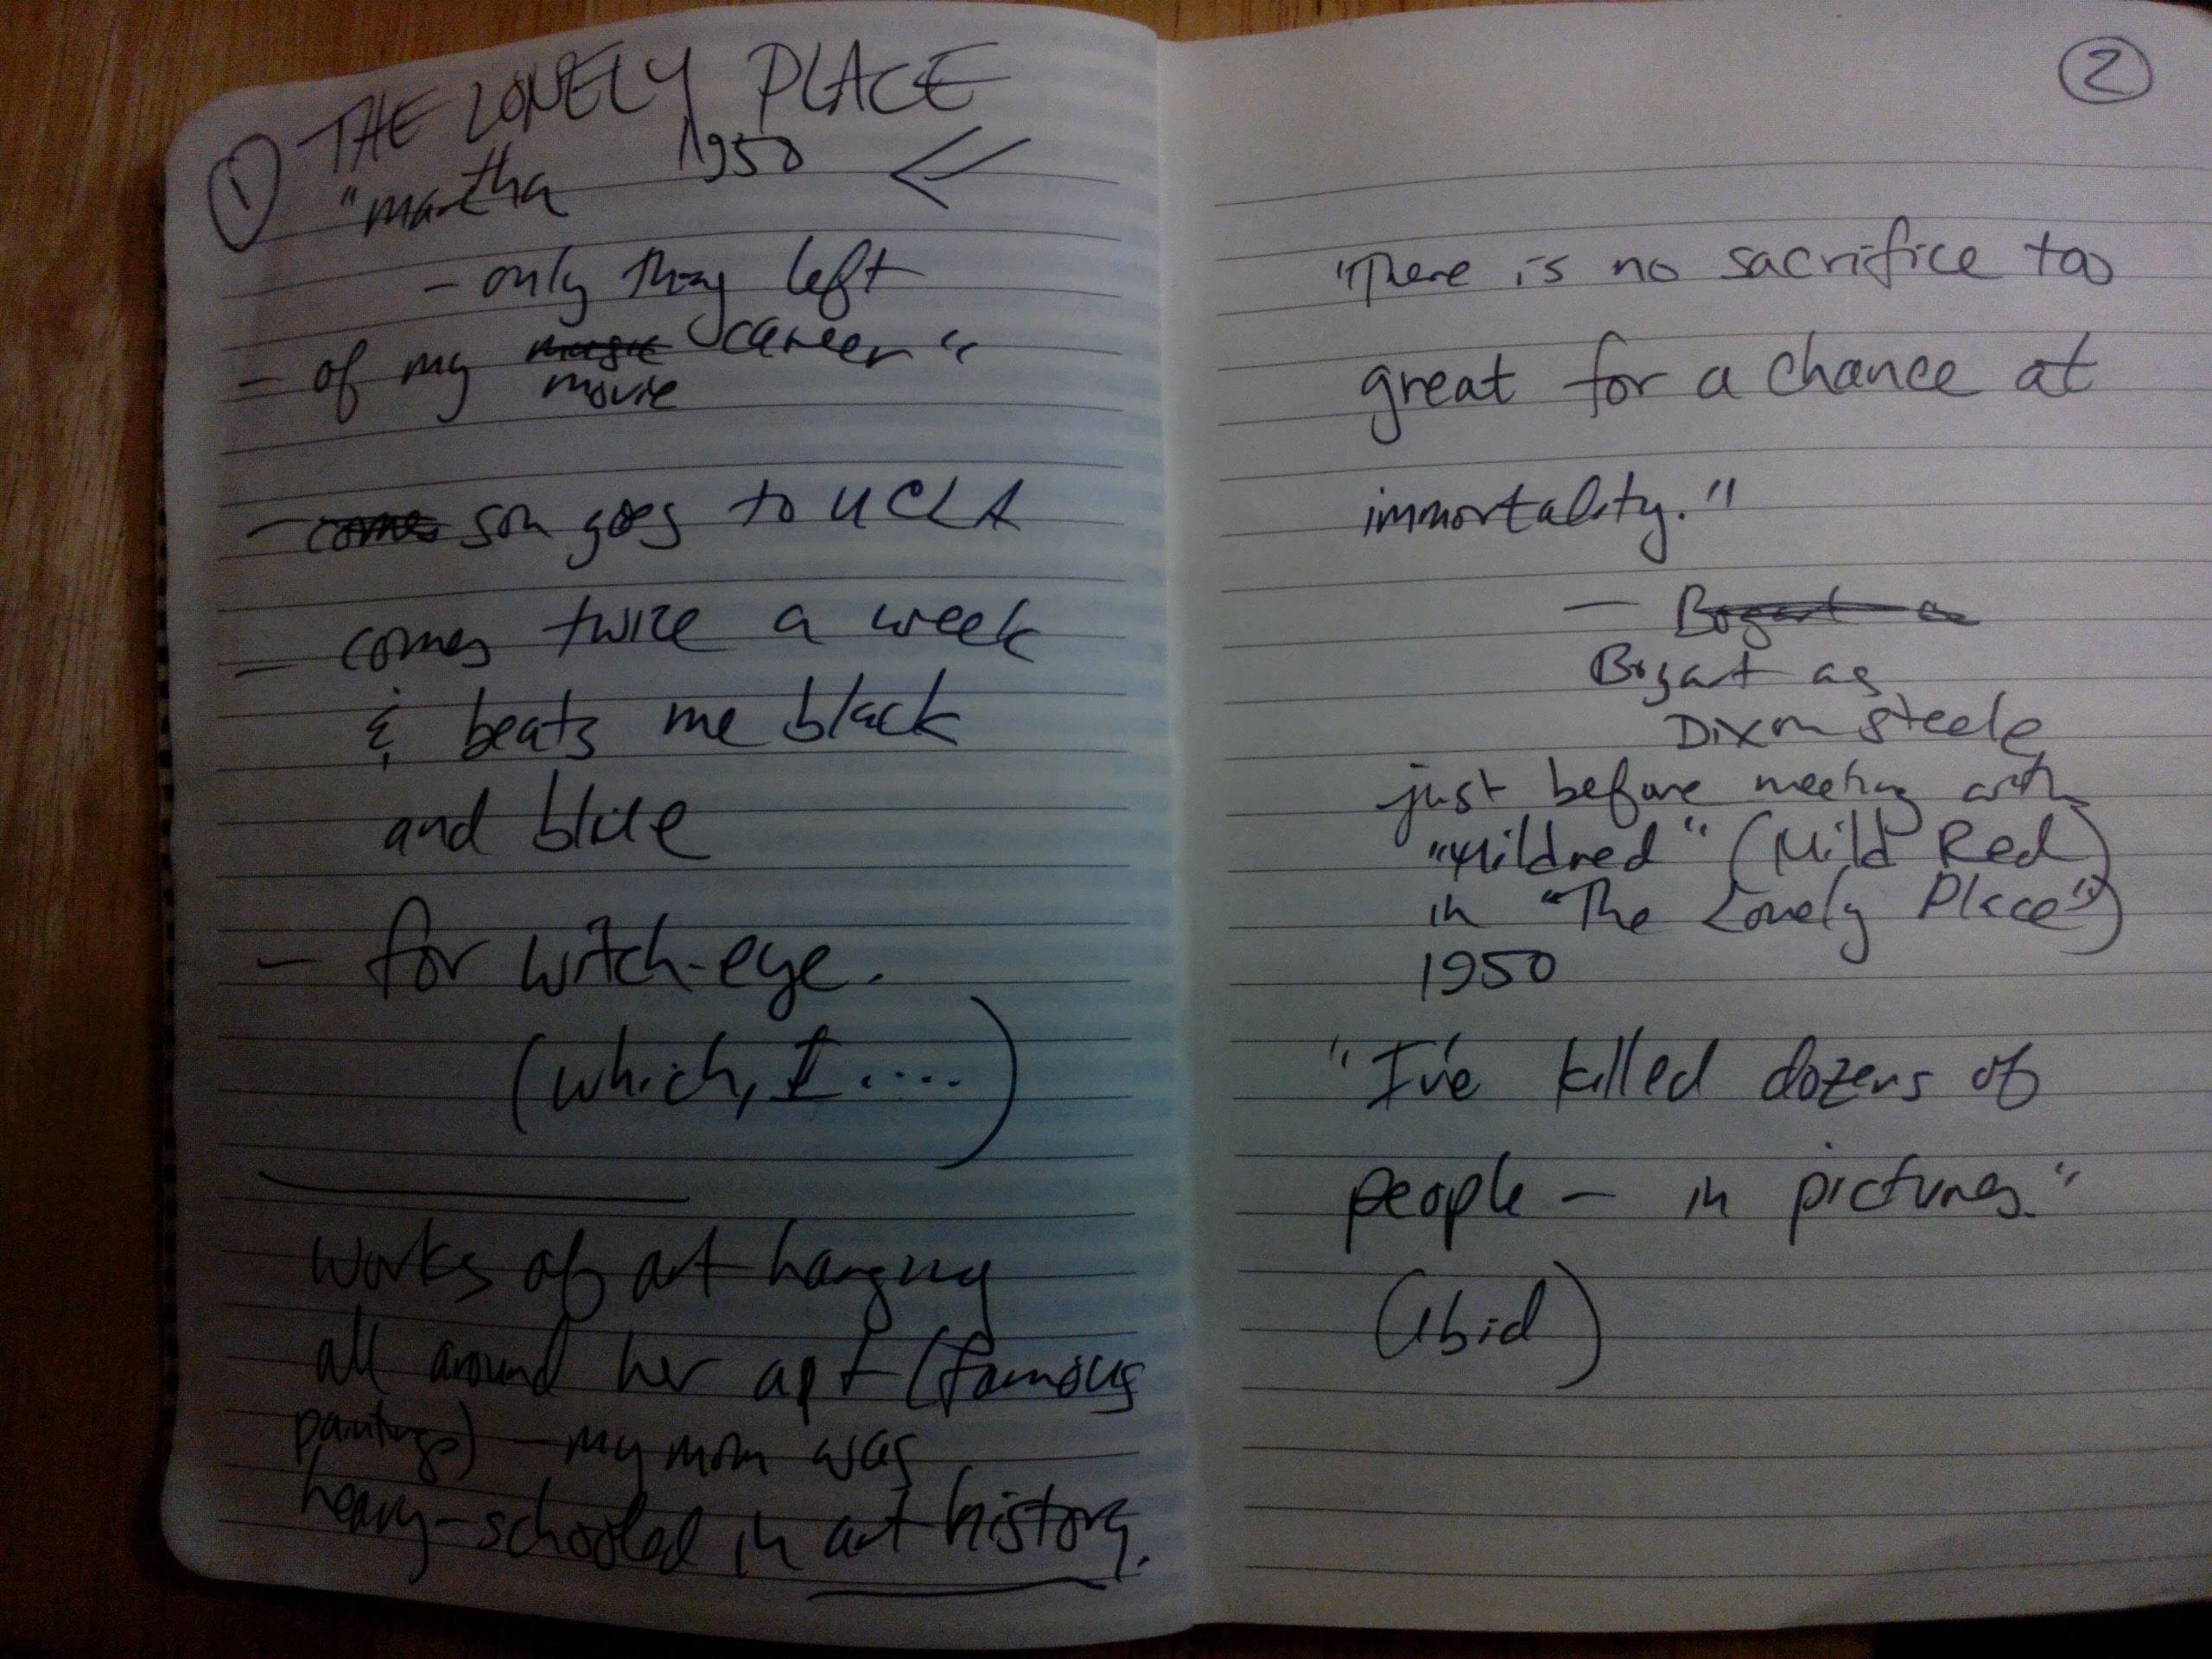 ① THE LONELY PLACE
1950
"martha
- only thing left
- of my music career"
movie
- comes son goes to UCLA
- comes twice a week
& beats me black
and blue
- for witch-eye.
(which, I ....)
works of art hanging
all around her apt (famous
paintings) - my mom was
heavy-schooled in art history.
②
"There is no sacrifice too
great for a chance at
immortality."
- Bogart a
Bogart as
Dixon Steele,
just before meeting with
"Mildred" (Mild Red)
in "The Lonely Place")
1950
"I've killed dozens of
people - in pictures."
(Ibid)